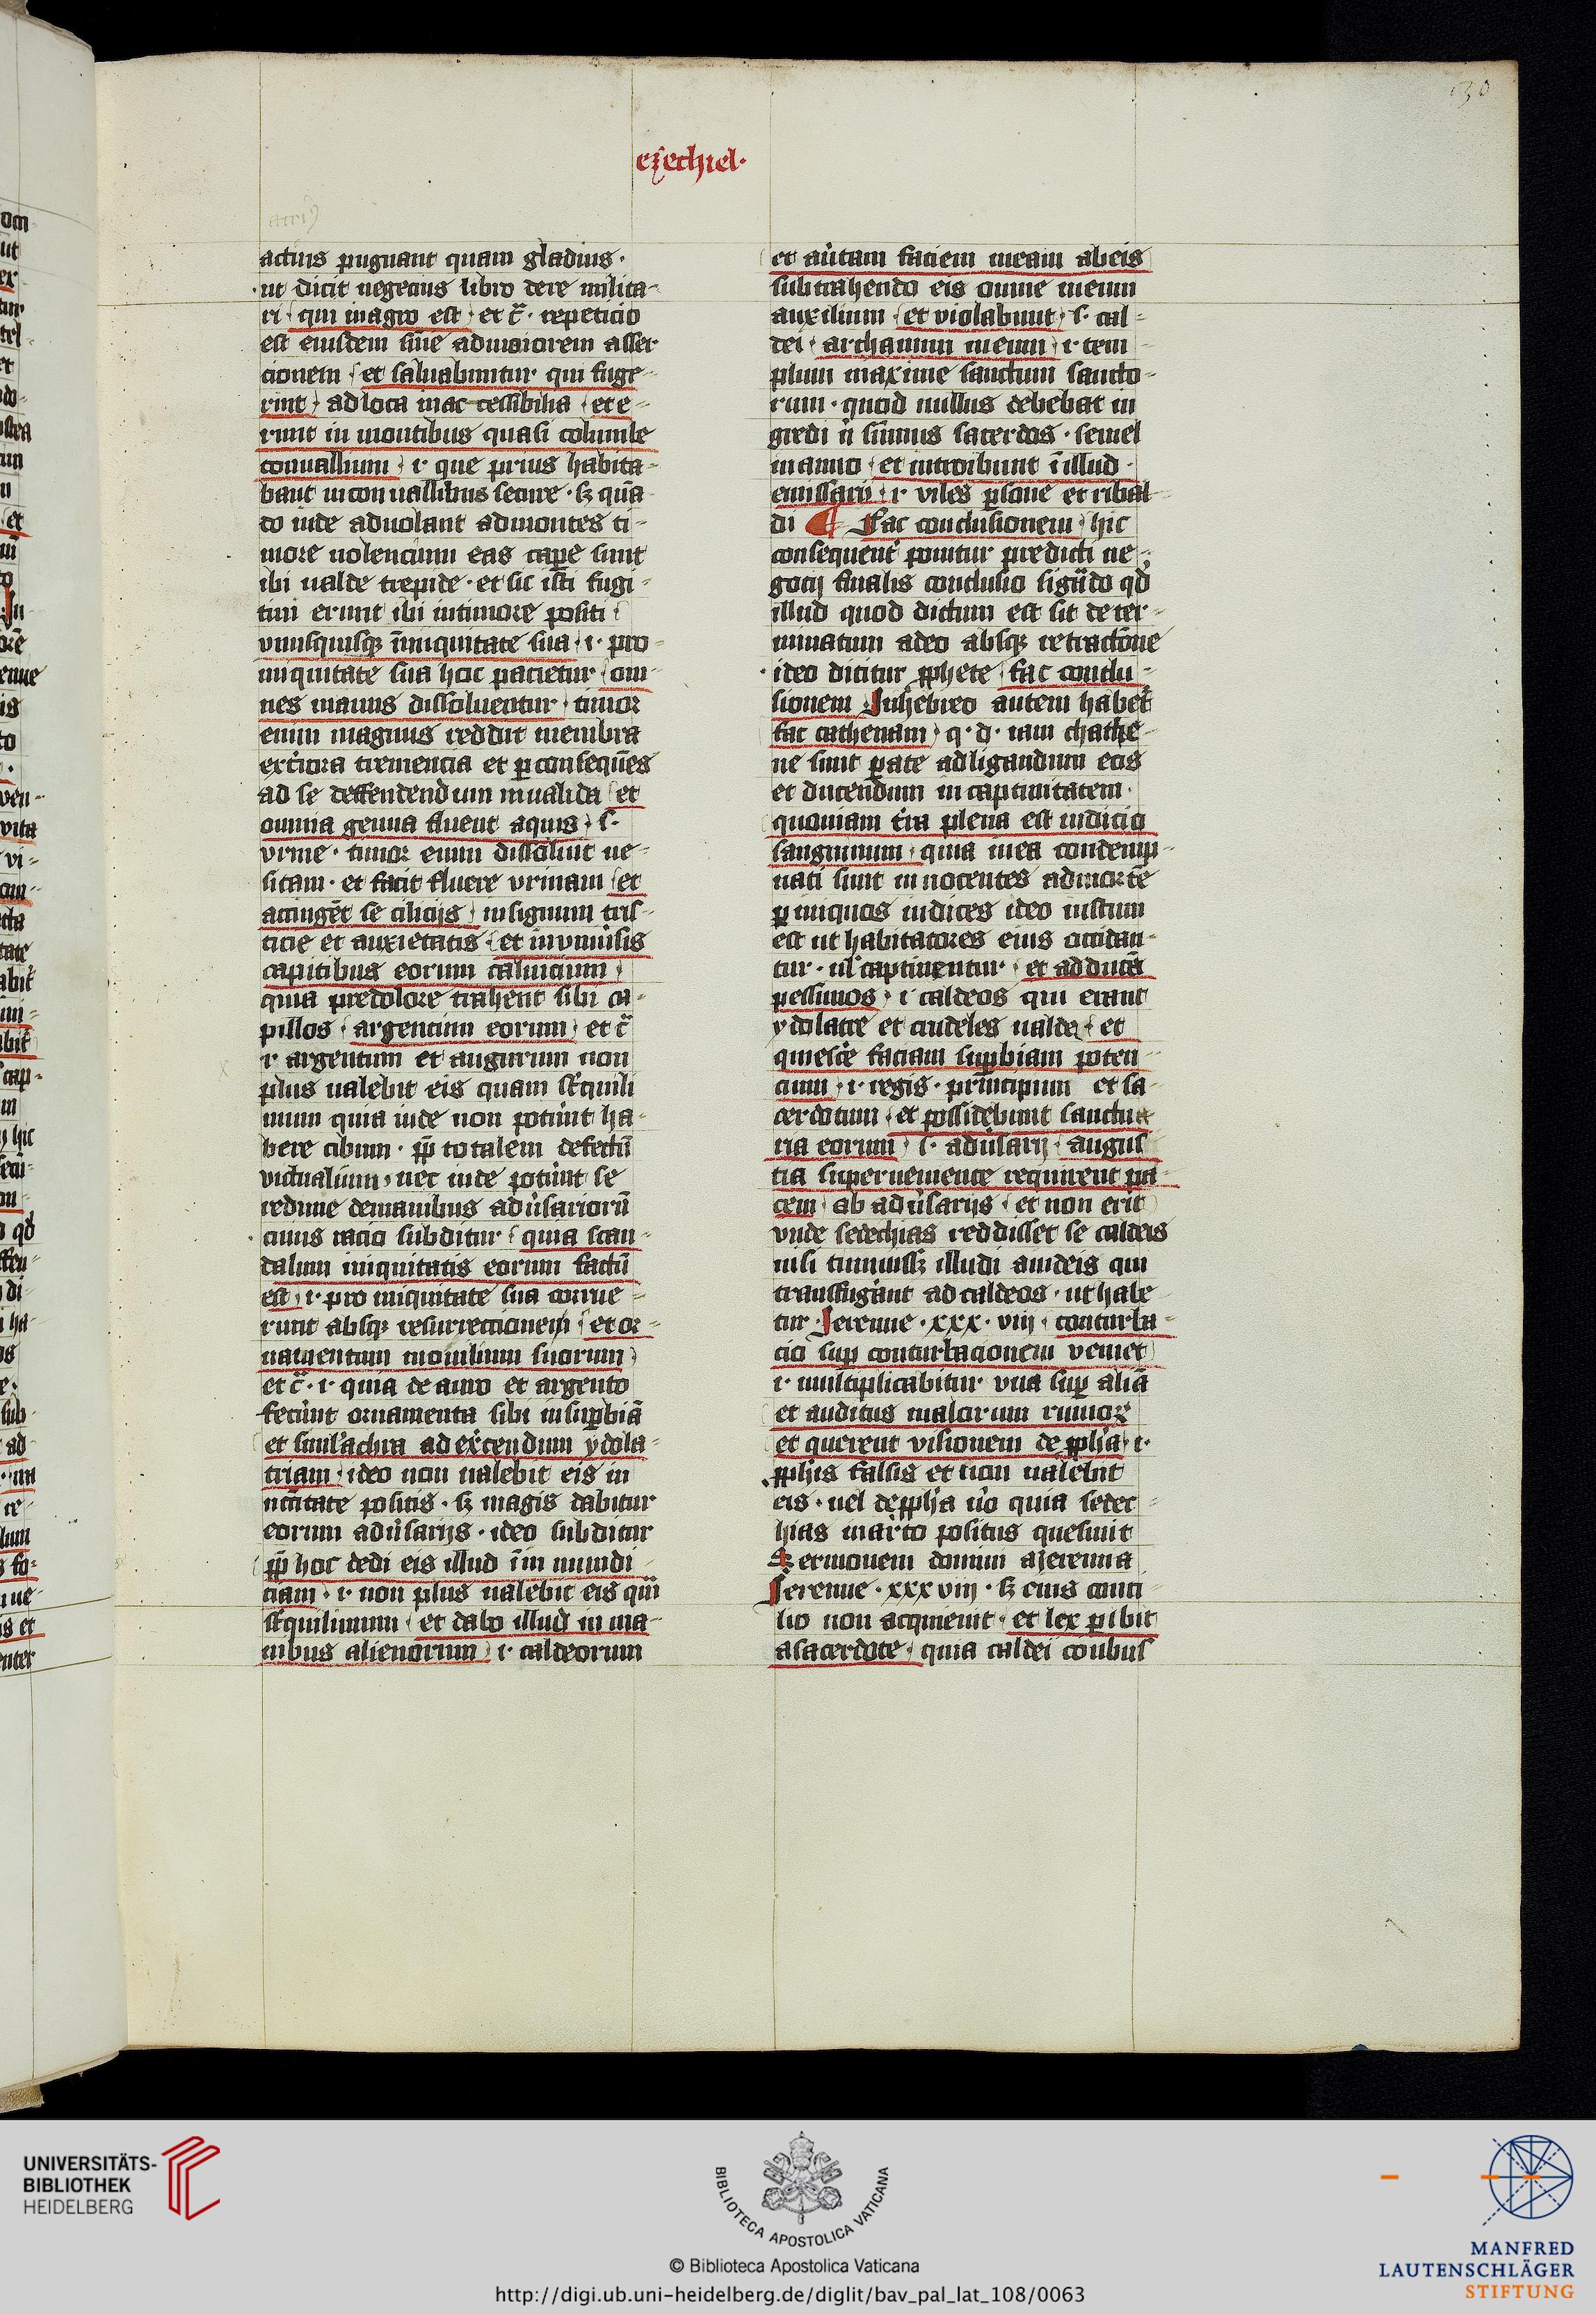 30
ezechiel·
acri9
acrius pugnant quam gladius·
ut dicit uegecius libro dere milita-
ri qui inagro est et c̃· repeticio
est eiusdem sn̄ie admaiorem asser
cionem et saluabuntur qui fuge-
rint adloca inac cessibilia et e-
runt in montibus quasi columbe
conuallium ·i· que prius habita-
bant inconuallibus secure· sꝫ qūa
do inde aduolant admontes ti-
more uolencium eas cape̱ sunt
ibi ualde trepide· et sic isti fugi-
tiui erunt ibi intimore positi
vnusquisqꝫ īniquitate sua ·i· pro
iniquitate sua hoc pacietur om-
nes manus dissoluentur timor
enim magnus reddit membra
exc̓iora tremencia et ꝑ conseque̅s
ad se deffendendum inualida et
omnia genua fluent aquis ·s·
vrine· timor enim dissoluit ue-
sicam· et facit fluere vrinam et
accinge̅t se ciliciis insignum tris-
ticie et anxietatis et inuniu̓sis
capitibus eorum caluicium
quia predolore trahent sibi ca-
pillos argentum eorum et c̃
·i· argentum et augurum non
plus ualebit eis quam st̓quili
nium quia inde non potu̓nt ha-
bere cibum· ꝓp̄ totalem defectū
victualium· nec inde potu̓nt se
redime demanibus adu̓sariorū
cuius racio subditur quia scan-
dalum iniquitatis eorum factū
est ·i· pro iniquitate sua corrue-
runt absqꝫ resurrectionem et or-
namentum monilium suorum
et c̃· i· quia de auro et argento
fecu̓nt ornamenta sibi insuꝑbiā
et simulachra ad exc̓endum ydola-
triam ideo non ualebit eis in
nc̄citate positis· sꝫ magis dabitur
eorum adu̓sariis· ideo subditur
ꝓp̄ hoc dedi eis illud īm mundi
ciam ·i· non plus ualebit eis qm̄
st̓quilinium et dabo illud in ma-
nibus alienorum ·i· caldeorum
et au̓tam faciem meam abeis
subtrahendo eis omne meum
auxilium et violabunt ·s· cal-
dei archanum meum ·i· tem-
plum maxime sanctum sancto-
rum· quod nullus debebat in
gredi n̓ su̅mus sacerdos· semel
inanno et introibunt ī illud·
emissarij ·i· viles ꝑsone et ribal-
di ¶ Fac conclusionem hic
consequent̓ ponitur predicti ne-
gocij finalis conclusio signa̅do qd̓
illud quod dictum est sit deter-
minatum adeo absqꝫ retractōne
ideo dicitur ꝓphete fac conclu-
sionem Inhebreo autem habet̓
fac cathenam q·d· iam chathe-
ne sunt ꝑate adligandum eos
et ducendum in captiuitatem·
quoniam t̓ra plena est iudicio
sanguinum quia inea condemp-
nati sunt innocentes admorte
ꝑ iniquos iudices ideo iustum
est ut habitatores eius occidan-
tur· ul̓ captiuentur et adducā
pessimos ·i· caldeos qui erant
ydolatre et crudeles ualde et
quiesc̓e faciam suꝑbiam poten-
cium ·i· regis· principum et sa-
cerdotum et possidebunt sanctua
ria eorum ·s· adu̓sarij angus-
tia superueniente requirent pa-
cem ab adu̓sarijs et non erit
vnde sedechias reddisset se caldeis
nisi timuissꝫ illudi aiudeis qui
transfuge̓ant ad caldeos· ut habe-
tur Jeremie ·xxx·viij· conturba-
cio suꝑ conturbacionem veniet
·i· multiplicabitur vna suꝑ aliā
et auditus malorum rumor̓
et querent visionem de ꝓph̓a ·i·
ꝓph̓is falsis et non ualebit
eis· uel deꝓph̓a u̓o quia sedec-
hias inar̓to positus quesiuit
Sermonem domini aJeremia
Jeremie ·xxxviij· sꝫ eius consi-
lio non acquieuit et lex ꝑibit
asacerdote quia caldei conbus
UNIVERSITÄTS-
BIBLIOTHEK
HEIDELBERG
BIBLIOTECA APOSTOLICA VATICANA
© Biblioteca Apostolica Vaticana
http://digi.ub.uni-heidelberg.de/diglit/bav_pal_lat_108/0063
MANFRED
LAUTENSCHLÄGER
STIFTUNG